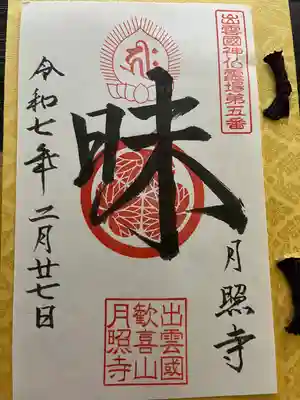 出雲國神仏霊場第五番
昧
月照寺
令和七年二月廿七日
出雲國
歡喜山
月照寺